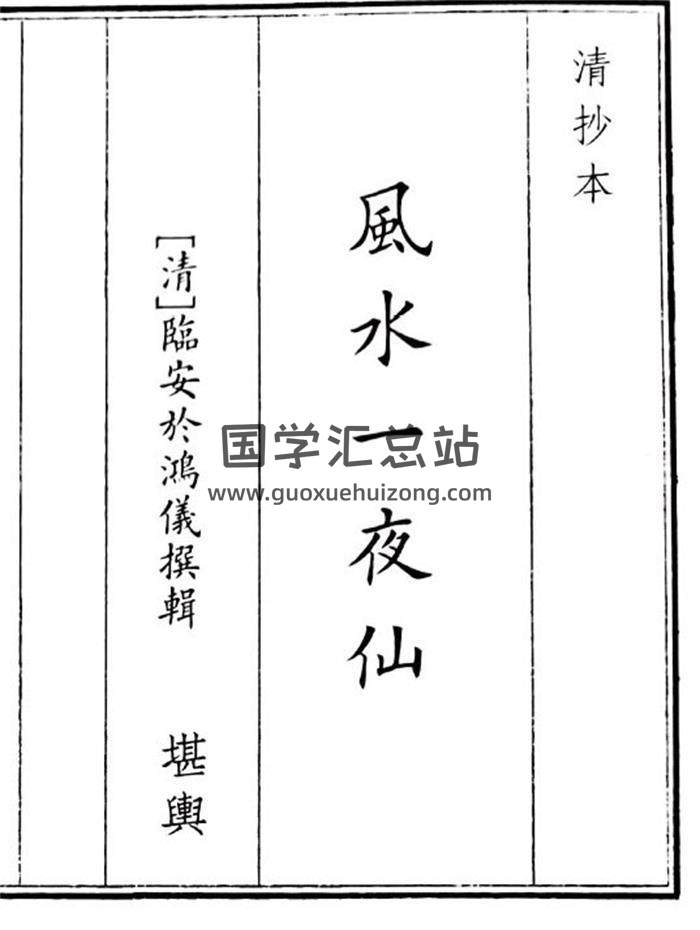 清抄本
風水一夜仙
[清]臨安於鴻儀撰輯
堪輿
国学汇总站
www.guoxuehuizong.com